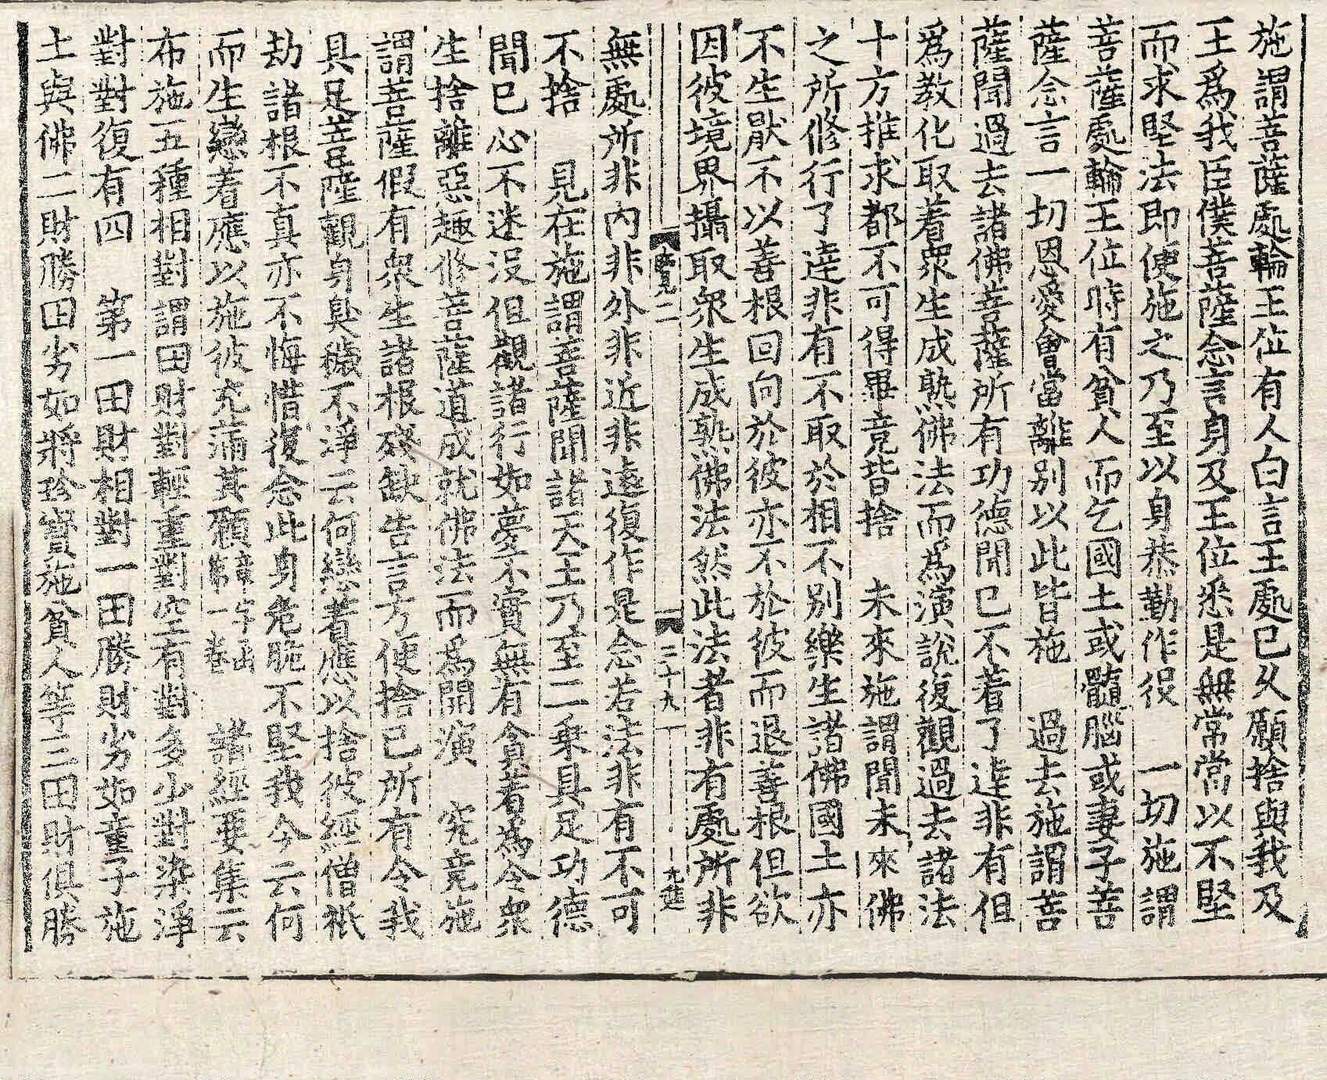 施謂菩薩處輪王位有人白言王處已久願捨與我及
王爲我臣僕菩薩念言身及王位悉是無常當以不堅
而求堅法即便施之乃至以身恭勤作役　一切施謂
菩薩處輪王位時有貧人而乞國土或髓腦或妻子菩
薩念言一切恩愛會當離別以此皆施　過去施謂菩
薩聞過去諸佛菩薩所有功德聞已不着了達非有但
爲教化取着衆生成熟佛法而爲演說復觀過去諸法
十方推求都不可得畢竟皆捨　未來施謂聞未來佛
之所修行了達非有不取於相不別樂生諸佛國土亦
不生厭不以善根回向於彼亦不於彼而退善根但欲
因彼境界攝取衆生成熟佛法然此法者非有處所非
二
三十九
無處所非內非外非近非遠復作是念若法非有不可
不捨　見在施謂菩薩聞諸天王乃至二乗具足功德
聞已心不迷沒但觀諸行如夢不實無有貪着爲令衆
生捨離惡趣修菩薩道成就佛法而爲開演　究竟施
謂菩薩假有衆生諸根殘缺告言方便捨已所有令我
具足菩薩觀身臭穢不淨云何戀着應以捨彼經僧祇
劫諸根不真亦不悔惜復念此身危脆不堅我今云何
而生戀着應以施彼充滿其願章字出第一卷　諸經要集云
布施五種相對謂田財對輕重對空有對多少對染淨
對對復有四　第一田財相對一田勝財劣如童子施
土與佛二財勝田劣如將珍寶施貧人等三田財俱勝